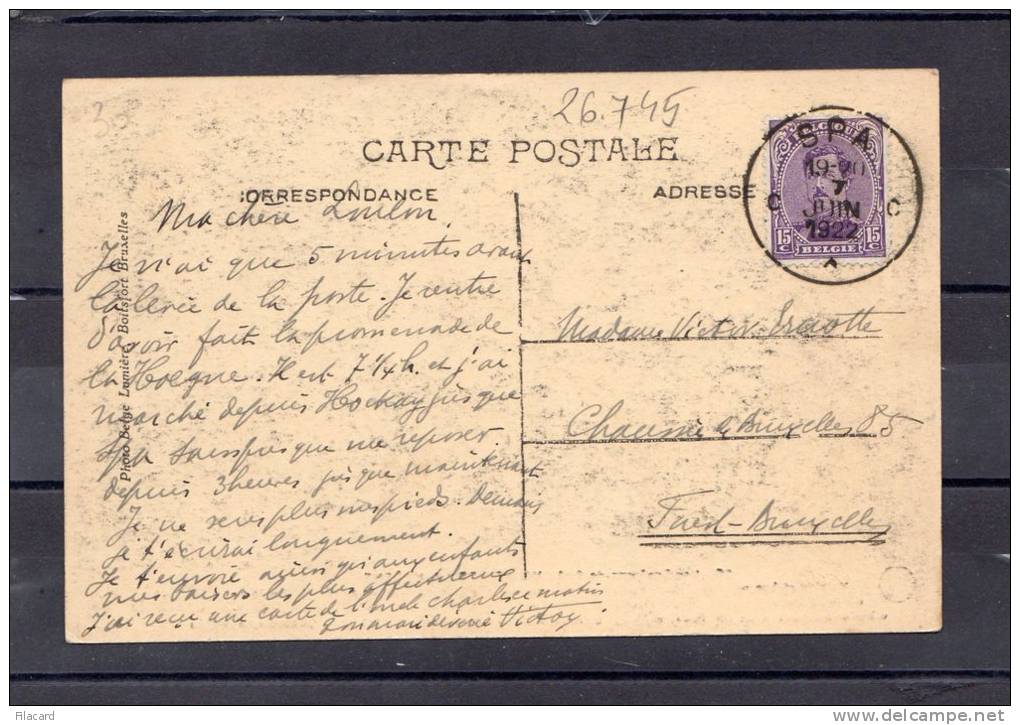 26.745
CARTE POSTALE
CORRESPONDANCE
ADRESSE
SPA
19-20
7
JUIN
1922
C C
A
BELGIQUE
15 C 15 C
BELGIE
Photo Belge Lumière, Boitsfort Bruxelles
Ma chère Loulou
Je n'ai que 5 minutes avant
la levée de la poste. Je rentre
d'avoir fait la promenade de
la Hoegne. Il est 7 1/4 h. et j'ai
marché depuis Hockay jusque
Spa sans presque me reposer.
depuis 3 heures jusque maintenant
Je ne sens plus mes pieds. Demain
je t'écrirai longuement.
Je t'envoie ainsi qu'aux enfants
mes baisers les plus affectueux
J'ai reçu une carte de l'oncle Charles ce matin
Ton mari Victor
Madame Victor
Chaussée de Bruxelles 85
Forest-Bruxelles
Filacard
www.delcampe.net